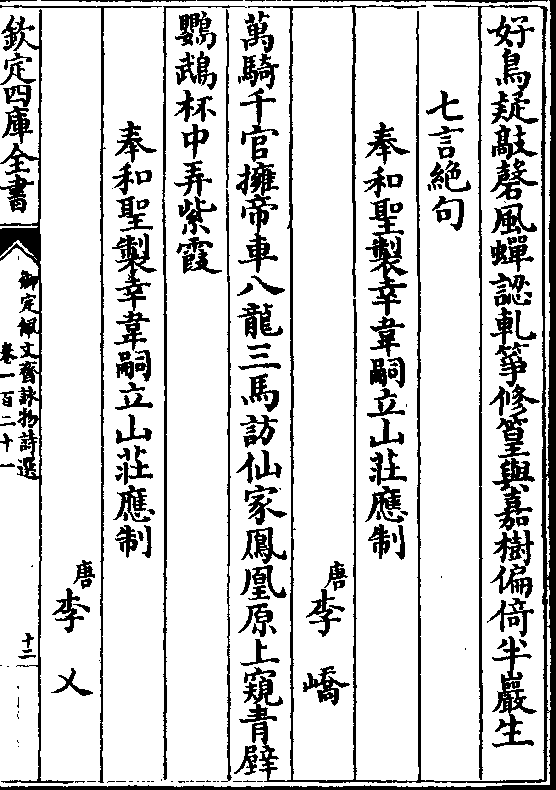 好鳥疑敲磬風蟬認軋箏修篁與嘉樹偏倚半巖生
七言絶句
奉和聖製幸韋嗣立山莊應制
唐李嶠
萬騎千官擁帝車八龍三馬訪仙家鳳凰原上窺青壁
鸚鵡杯中弄紫霞
奉和聖製幸韋嗣立山莊應制
唐李乂
欽定四庫全書
御定佩文齋詠物詩選
卷一百二十一
十二